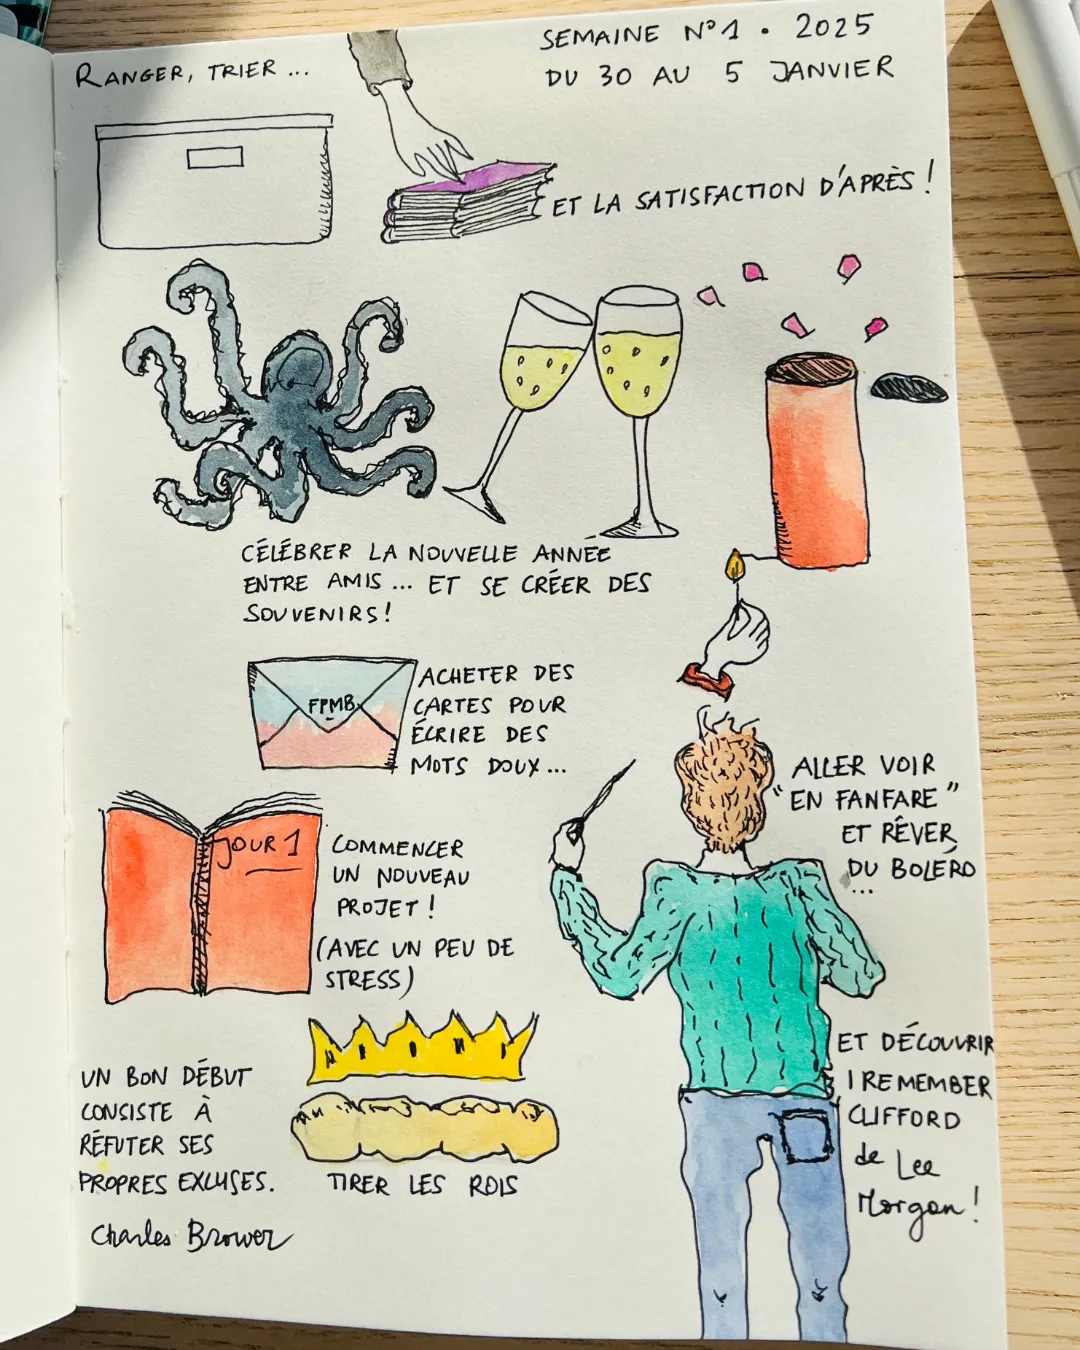 RANGER, TRIER ...
SEMAINE N°1 . 2025
DU 30 AU 5 JANVIER
ET LA SATISFACTION D'APRÈS !
CÉLÉBRER LA NOUVELLE ANNÉE
ENTRE AMIS ... ET SE CRÉER DES
SOUVENIRS !
FPMB
ACHETER DES
CARTES POUR
ÉCRIRE DES
MOTS DOUX ...
ALLER VOIR
"EN FANFARE"
ET RÊVER
DU BOLÉRO
...
JOUR 1
COMMENCER
UN NOUVEAU
PROJET !
(AVEC UN PEU DE
STRESS)
ET DÉCOUVRIR
I REMEMBER
CLIFFORD
de Lee
Morgan !
UN BON DÉBUT
CONSISTE À
RÉFUTER SES
PROPRES EXCUSES.
Charles Brower
TIRER LES ROIS